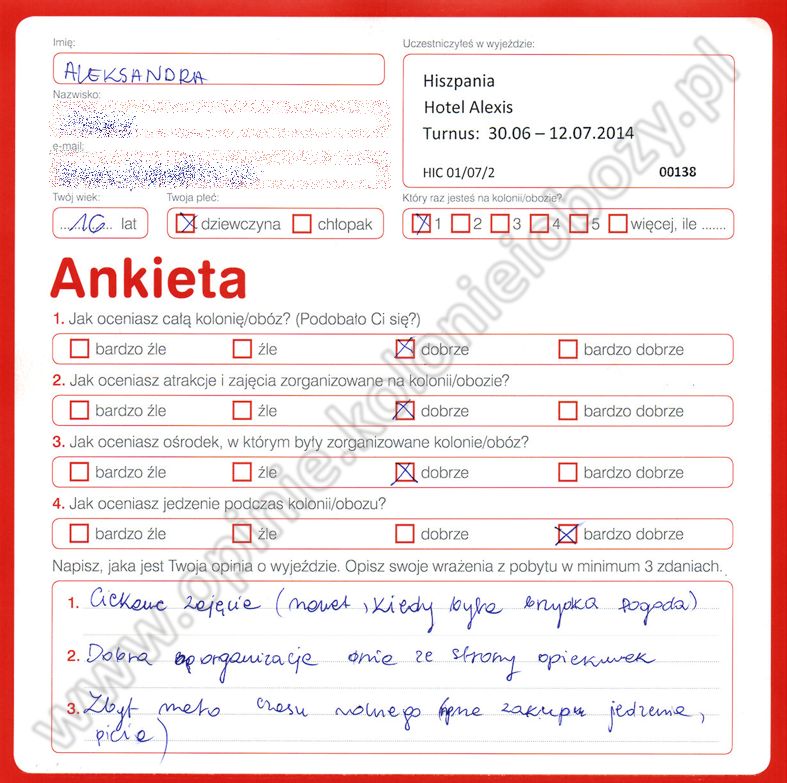 Imię:
ALEKSANDRA
Nazwisko:
e-mail:
Uczestniczyłeś w wyjeździe:
Hiszpania
Hotel Alexis
Turnus: 30.06 – 12.07.2014
HIC 01/07/2 00138
Twój wiek: Twoja płeć: Który raz jesteś na kolonii/obozie?
16 lat dziewczyna chłopak 1 2 3 4 5 więcej, ile .......
Ankieta
1. Jak oceniasz całą kolonię/obóz? (Podobało Ci się?)
bardzo źle źle dobrze bardzo dobrze
2. Jak oceniasz atrakcje i zajęcia zorganizowane na kolonii/obozie?
bardzo źle źle dobrze bardzo dobrze
3. Jak oceniasz ośrodek, w którym były zorganizowane kolonie/obóz?
bardzo źle źle dobrze bardzo dobrze
4. Jak oceniasz jedzenie podczas kolonii/obozu?
bardzo źle źle dobrze bardzo dobrze
Napisz, jaka jest Twoja opinia o wyjeździe. Opisz swoje wrażenia z pobytu w minimum 3 zdaniach.
1. Ciekawe zajęcia (nawet, kiedy była brzydka pogoda)
2. Dobra organizacja dnia ze strony opiekunek
3. Zbyt mało czasu wolnego (na zakup jedzenia,
picia)
www.opinie.kolonieiobozy.pl